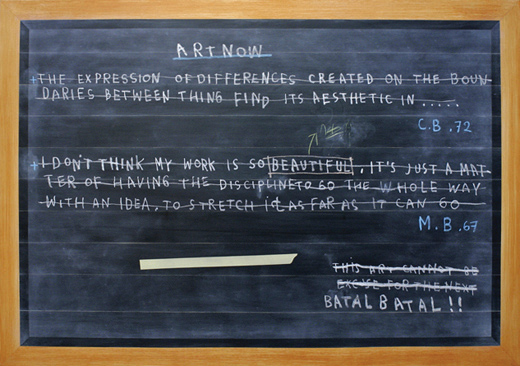 ART NOW
THE EXPRESSION OF DIFFERENCES CREATED ON THE BOUN-
DARIES BETWEEN THING FIND ITS AESTHETIC IN .....
C.B .72
I DON'T THINK MY WORK IS SO BEAUTIFUL, IT'S JUST A MAT-
TER OF HAVING THE DISCIPLINE TO GO THE WHOLE WAY
WITH AN IDEA, TO STRETCH it AS FAR AS IT CAN GO
M.B .67
THIS ART CANNOT BE
EXCUSE FOR THE NEXT
BATAL BATAL!!